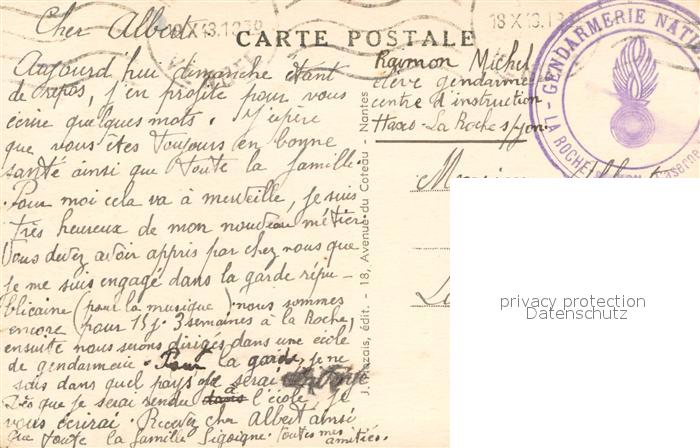 Cher Albert
Aujourd hui dimanche étant
de repos, j'en profite pour vous
écrire quelques mots. J'espère
que vous êtes toujours en bonne
santé ainsi que toute la famille.
Pour moi cela va à merveille, je suis
très heureux de mon nouveau métier
Vous devez avoir appris par chez nous que
je me suis engagé dans la garde répu-
blicaine (pour la musique). nous sommes
encore pour 15 j. 3 semaines à la Roche,
ensuite nous serons dirigés dans une école
de gendarmerie. Pour la garde, je ne
sais dans quel pays je serai
Dès que je serai rendu à l'école, je
vous écrirai. Recevez cher Albert ainsi
que toute la famille Sigoigne. toutes mes
amitiés.
CARTE POSTALE
18 X 13.1938
18 X 13.1
Raimon Michel
élève gendarme
centre d'instruction
Haxo - La Roche s/yon.
GENDARMERIE NAT
LA ROCHE
Caserne
J. Nozais, édit. - 18, Avenue du Coteau - Nantes
privacy protection
Datenschutz